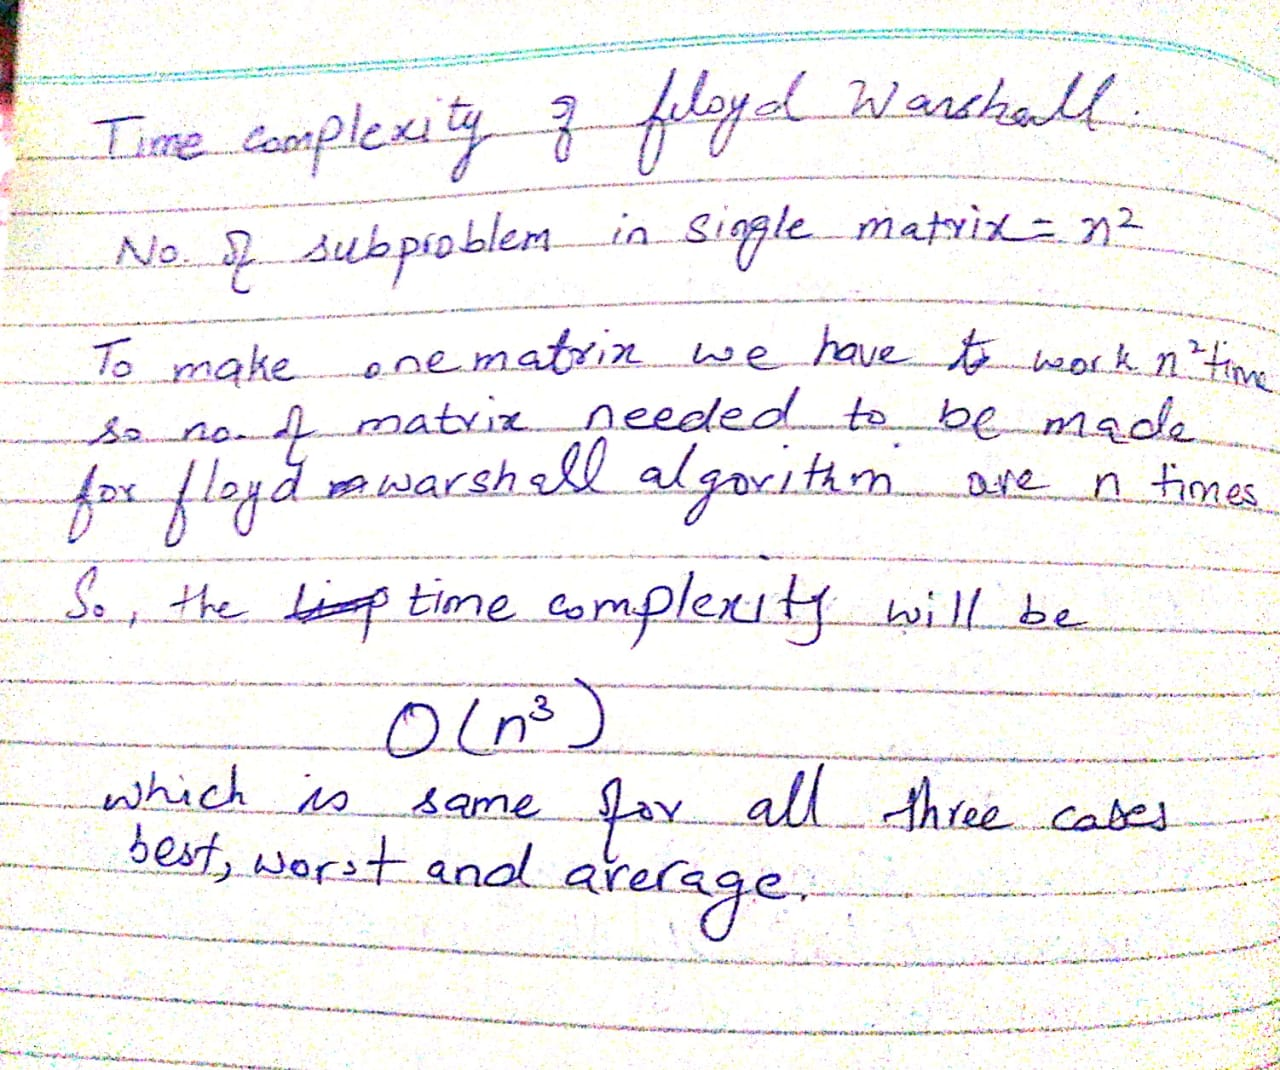 Time complexity of floyd Warshall.
No. of subproblem in single matrix = n²
To make one matrix we have to work n² time
so no. of matrix needed to be made
for floyd warshall algorithm are n times
So, the time complexity will be
O(n³)
which is same for all three cases
best, worst and average.